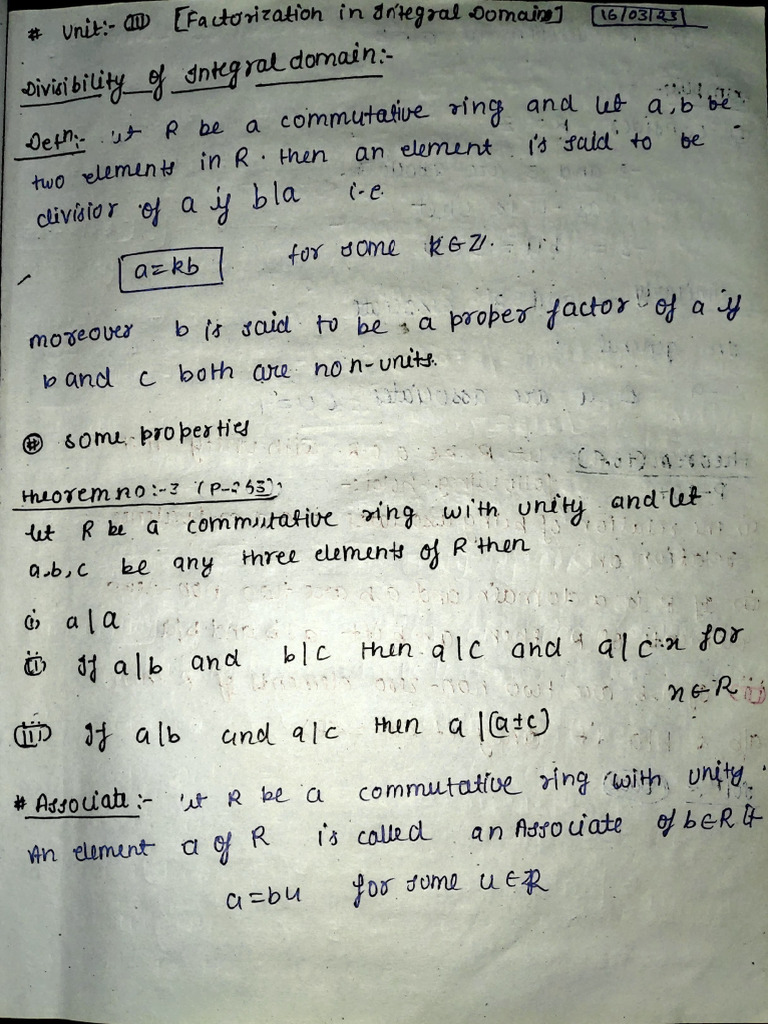 # Unit:- (III) [Factorization in Integral Domain] 16/03/23
Divisibility of Integral domain:-
Defn:- let R be a commutative ring and let a,b be
two elements in R. then an element is said to be
divisior of a if b|a i.e.
a=kb for some k∈Z.
moreover b is said to be a proper factor of a if
b and c both are non-units.
(#) some properties
theorem no:-3 (P-253):
let R be a commutative ring with unity and let
a,b,c be any three elements of R then
(i) a|a
(ii) If a|b and b|c then a|c and a|cx for
x∈R
(III) If a|b and a|c then a|(a±c)
# Associate:- let R be a commutative ring with unity.
An element a of R is called an Associate of b∈R if
a=bu for some u∈R